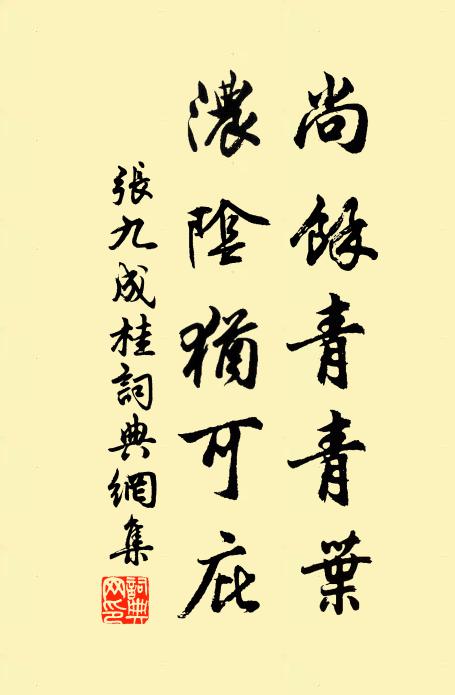 尚餘青青葉
濃陰猶可庇
張九成桂詞典網集
詞典网印